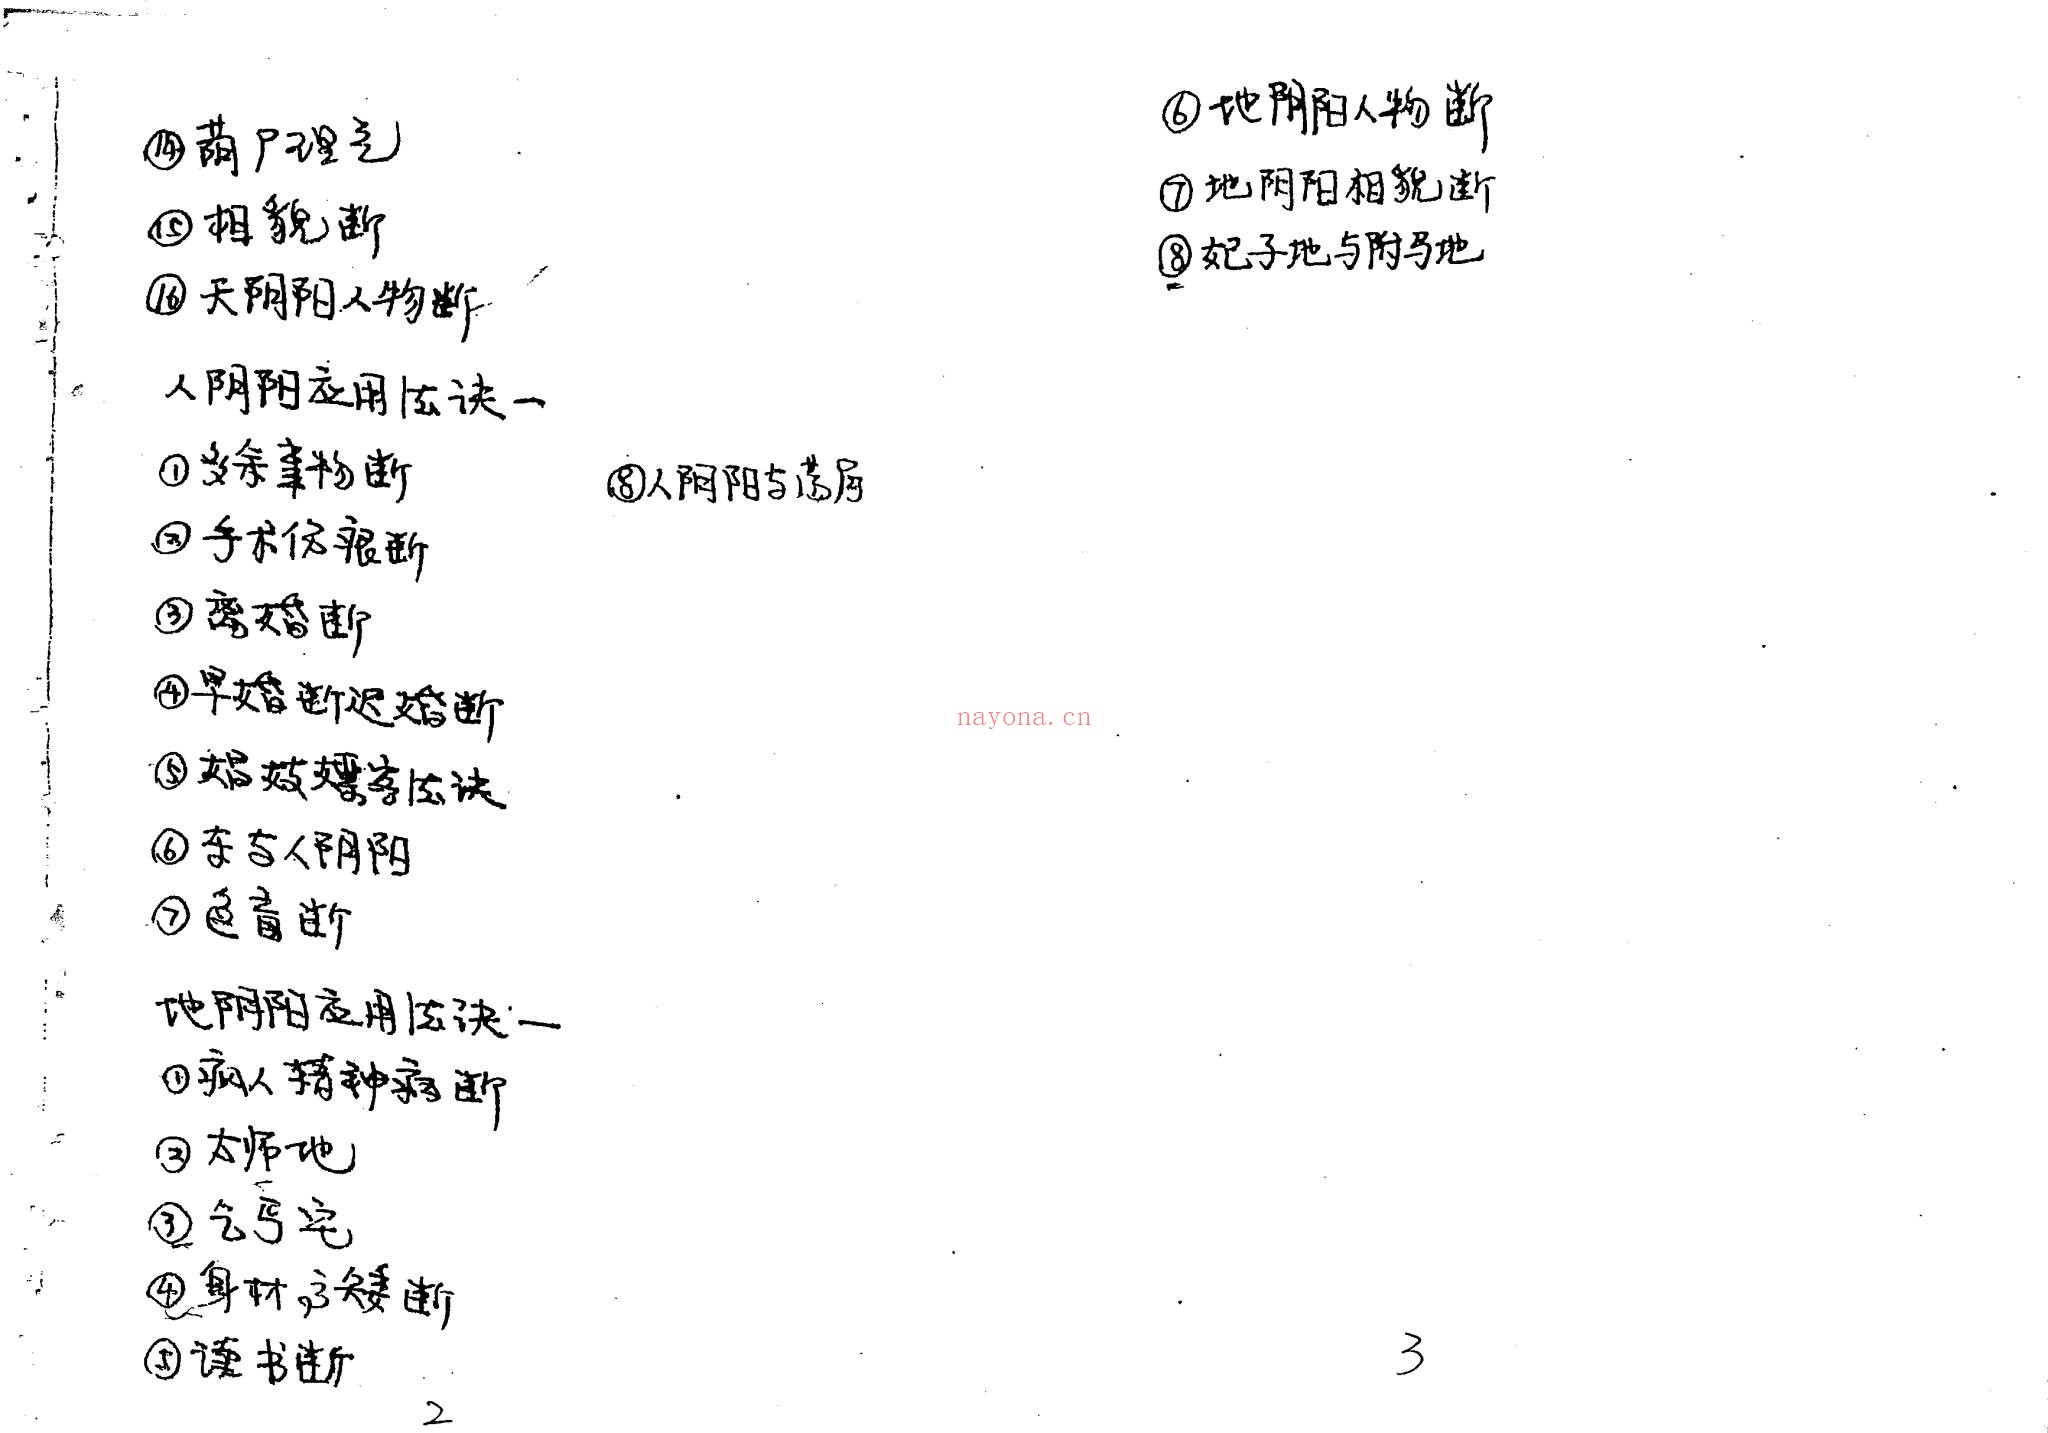 ⑭葫芦理气
⑮相貌断
⑯天阴阳人物断
人阴阳应用法诀一
①多余事物断
②手术伤痕断
③离婚断
④早婚断迟婚断
⑤娼妓嫖客法诀
⑥车与人阴阳
⑦色盲断
⑧人阴阳与
地阴阳应用法诀一
①病人精神病断
②太师地
③乞丐宅
④身材高矮断
⑤读书断
2
⑥地阴阳人物断
⑦地阴阳相貌断
⑧妃子地与附马地
3
nayona.cn